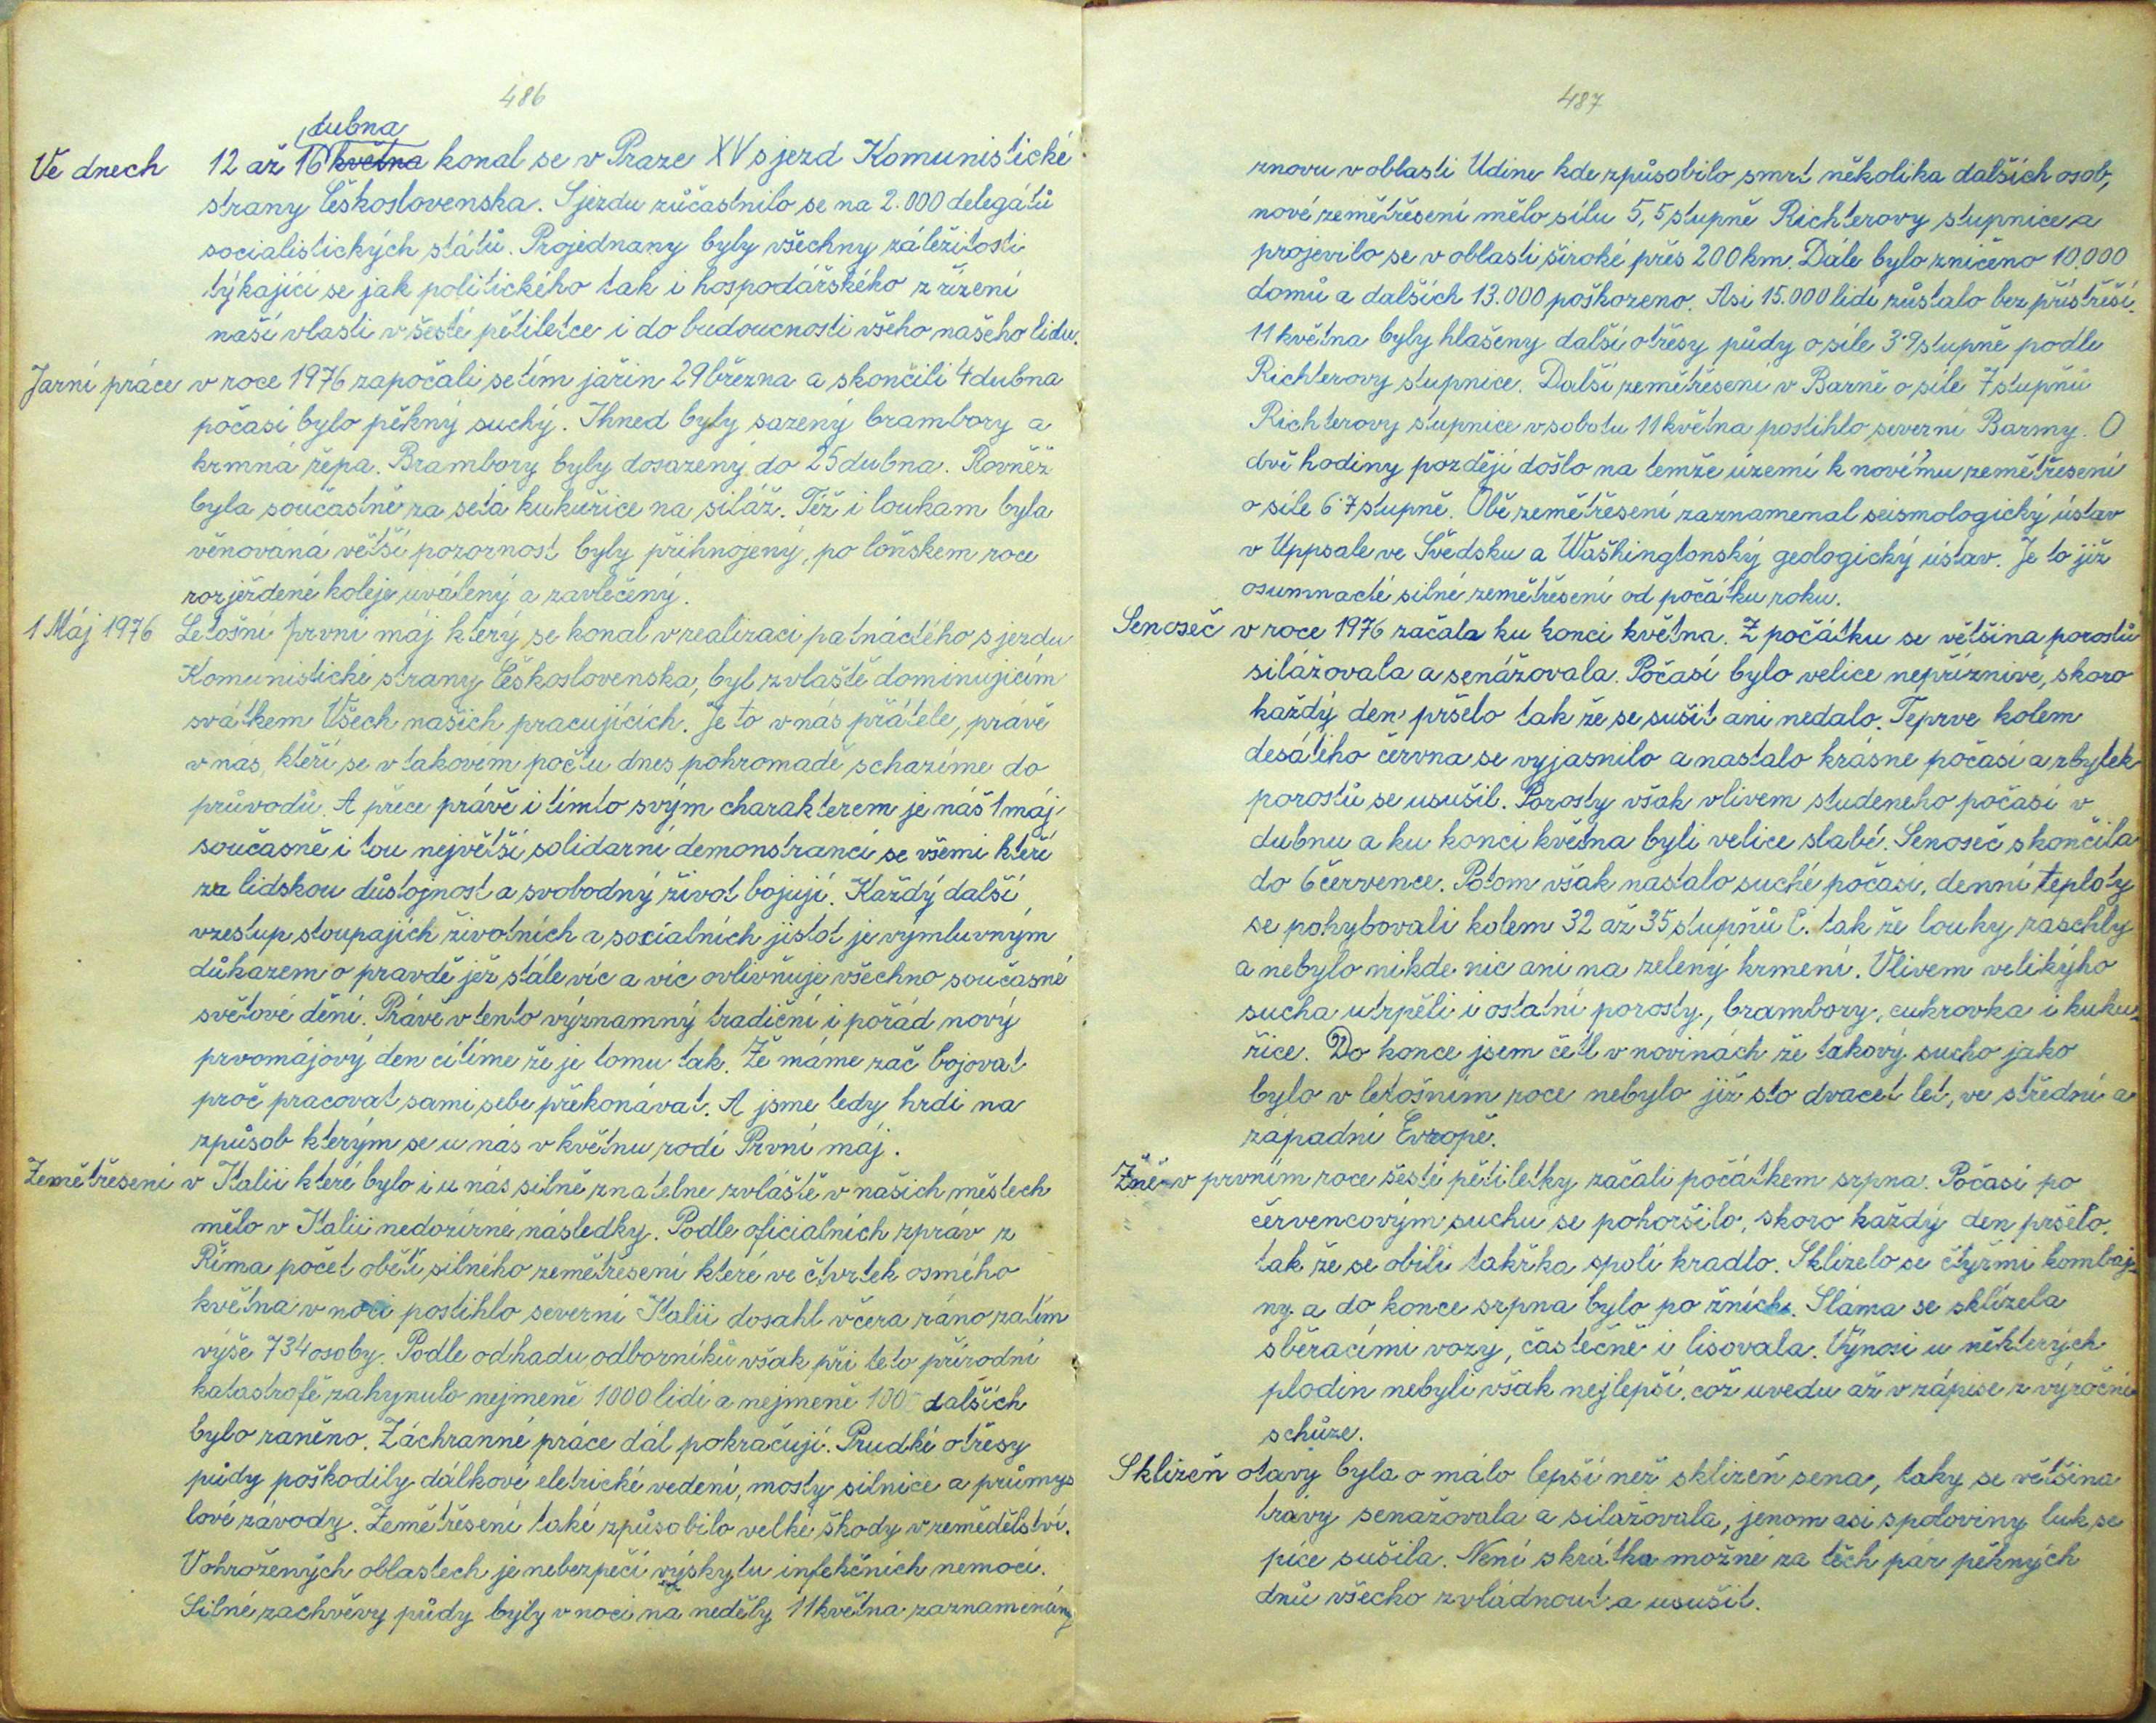 486
dubna
Ve dnech 12 až 16 května konal se v Praze XV sjezd Komunistické
strany Československa. Sjezdu zůčastnilo se na 2.000 delegátů
socialistických států. Projednany byly všechny záležitosti
týkající se jak politického tak i hospodářského zřízení
naší vlasti v šesté pětiletce i do budoucnosti všeho našeho lidu.
Jarní práce v roce 1976 započali setím jařin 29 března a skončili 4 dubna
počasí bylo pěkný suchý. Ihned byly sazený brambory a
krmná řepa. Brambory byly dosazený do 25 dubna. Rovněž
byla součastně za setá kukuřice na siláž. Též i loukam byla
věnováná větší pozornost byly přihnojený, po loňskem roce
rozježdené koleje uválený a zavlečený.
1 Máj 1976 Letošní první máj který se konal v realizaci patnáctého sjezdu
Komunistické strany Československa, byl zvlaště dominujícím
svátkem Všech našich pracujících. Je to v nás přátele, právě
v nás, kteří se v takovém počtu dnes pohromadě scházíme do
průvodů. A přece právě i tímto svým charakterem je náš 1 máj
současně i tou největší solidarní demonstrancí se všemi kteří
za lidskou důstojnost a svobodný život bojují. Každý další
vzestup stoupajích životních a socialních jistot je vymluvným
důkazem o pravdě jež stále víc a víc ovlivňuje všechno současné
světové dění. Práve v tento významný tradiční i pořád nový
prvomájový den cítíme že je tomu tak. Že máme zač bojovat
proč pracovat sami sebe překonávat. A jsme tedy hrdi na
způsob kterým se u nás v květnu rodí První máj.
Zemětřesení v Italii které bylo i u nás silně znatelne zvláště v našich městech
mělo v Italii nedozírné následky. Podle oficialních zpráv z
Říma počet obětí silného zemětřesení které ve čtvrtek osmého
května v noci postihlo severní Italii dosahl včera ráno zatím
výše 734 osoby. Podle odhadu odborníků však při teto přírodní
katastrofě zahynulo nejmeně 1000 lidí a nejmeně 100 dalších
bylo raněno. Záchranné práce dál pokračují. Prudké otřesy
půdy poškodily dálkové eletrické vedení, mosty silnice a průmys
lové závody. Zemětřesení také způsobilo velké škody v zemědělství.
V ohrožených oblastech je nebezpečí výskytu infekčních nemocí.
Silné zachvěvy půdy byly v noci na neděly 11 května zaznamenány
487
znovu v oblasti Udine kde způsobilo smrt několika dalších osob,
nové zemětřesení mělo sílu 5,5 stupně Richterovy stupnice a
projevilo se v oblasti široké přes 200 km. Dále bylo zničeno 10.000
domů a dalších 13.000 poškozeno. Asi 15.000 lidí zůstalo bez přístřeší.
11 května byly hlašeny další otřesy půdy o síle 3·9 stupně podle
Richterovy stupnice. Další zemětřesení v Barmě o síle 7 stupňů
Richterovy stupnice v sobotu 11 května postihlo severní Barmy. O
dvě hodiny později došlo na temže území k novému zemětřesení
o síle 6·7 stupně. Obě zemětřesení zaznamenal seismologický ústav
v Uppsale ve Švédsku a Wašhingtonský geologický ústav. Je to již
osumnacté silné zemětřesení od počátku roku.
Senoseč v roce 1976 začala ku konci května. Z počátku se většina porostů
silážovala a senážovala. Počasí bylo velice nepříznivé, skoro
každý den pršelo tak že se sušit ani nedalo. Teprve kolem
desátého června se vyjasnilo a nastalo krásne počasí a zbytek
porostů se usušil. Porosty však vlivem studeneho počasí v
dubnu a ku konci května byli velice slabé. Senoseč skončila
do 6 července. Potom však nastalo suché počasí, denní teploty
se pohybovali kolem 32 až 35 stupňů C. tak že louky zaschly
a nebylo nikde nic ani na zelený krmení. Vlivem velikýho
sucha utrpěli i ostatní porosty, brambory, cukrovka i kuku-
řice. Do konce jsem četl v novinách že takový sucho jako
bylo v letošním roce nebylo již sto dvacet let, ve střední a
západní Evropě.
Žně v prvním roce šesté pětiletky začali počátkem srpna. Počasí po
červencovým suchu se pohoršilo, skoro každý den pršelo.
tak že se obilí takřka spolí kradlo. Sklízelo se čtyřmi kombaj-
ny a do konce srpna bylo po žních. Sláma se sklízela
sběracími vozy, částečně i lisovala. Výnosi u některých
plodin nebyli však nejlepší, což uvedu až v zápise z výroční
schůze.
Sklizeň otavy byla o málo lepší než sklizeň sena, taky se většina
trávy senažovala a silažovala, jenom asi spoloviny luk se
píce sušila. Není skrátka možné za těch pár pěkných
dnů všecko zvládnout a usušit.